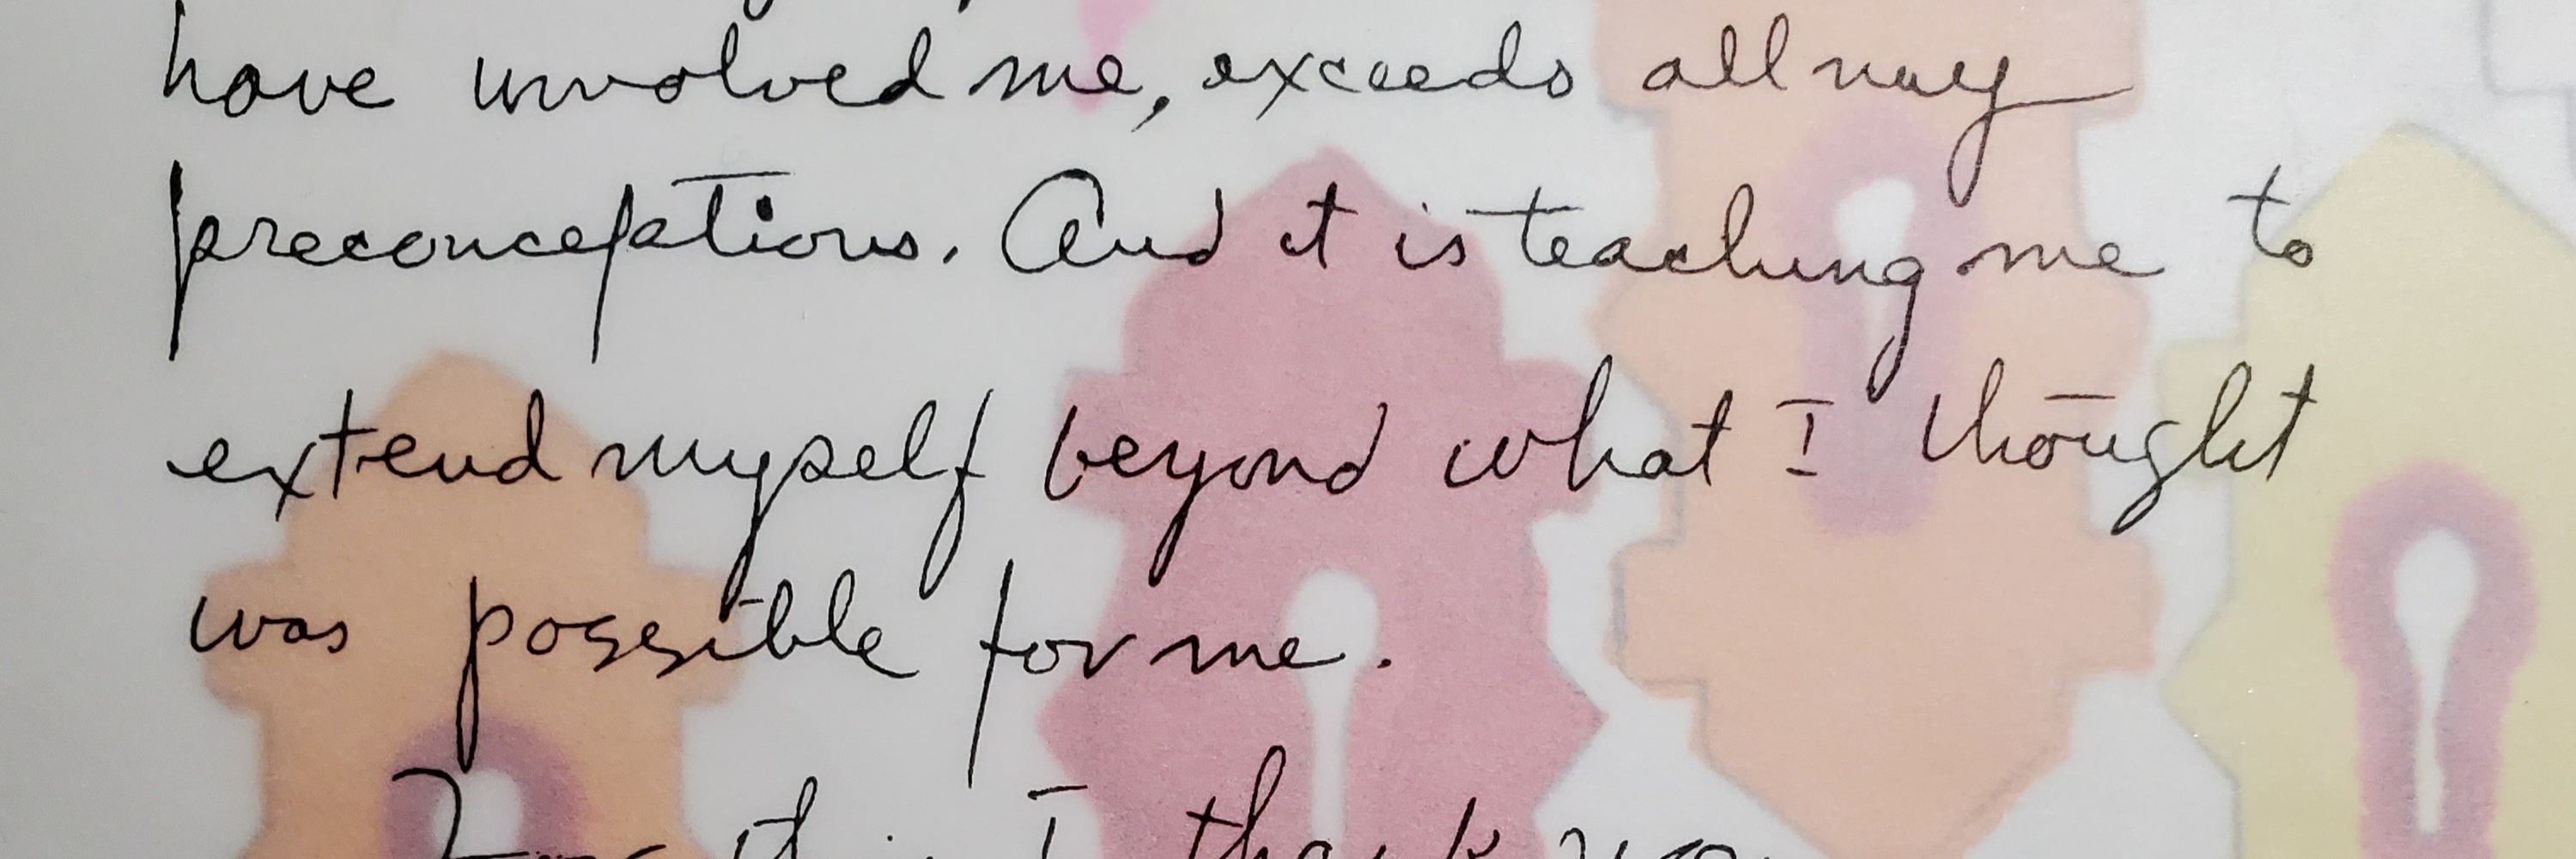 have involved me, exceeds all my
preconceptions. And it is teaching me to
extend myself beyond what I thought
was possible for me.
For this I thank you